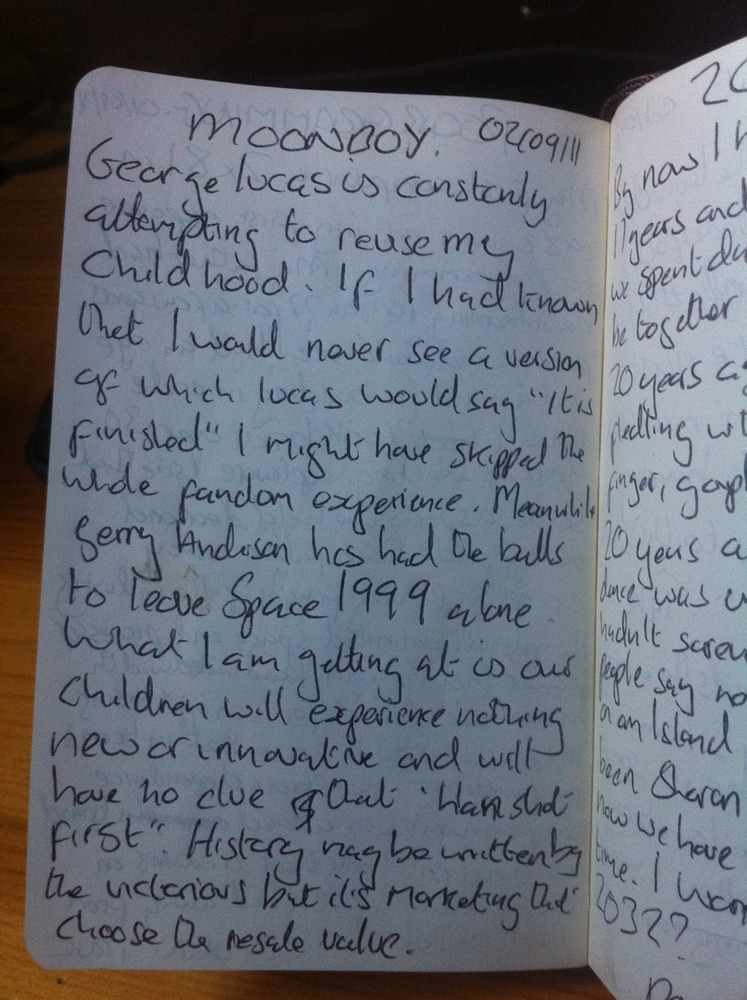 MOONBOY. 02/09/11
George lucas is constanly
attempting to reuse my
Childhood. If I had known
that I would never see a version
of which lucas would say "It is
finished" I might have skipped the
whole fandom experience. Meanwhile
Gerry Anderson has had the balls
to leave Space 1999 alone.
What I am getting at is our
children will experience nothing
new or innovative and will
have no clue that "Han shot
first". History may be written by
the victorious but it's marketing that
choose the resale value.
20
By now I h
17 years and
we spent du
be together
20 years a
wi
finger,
20 years a
dance was
hadn't screw
people say no
on an Island
been Sharon
now we have
time. I
2032?